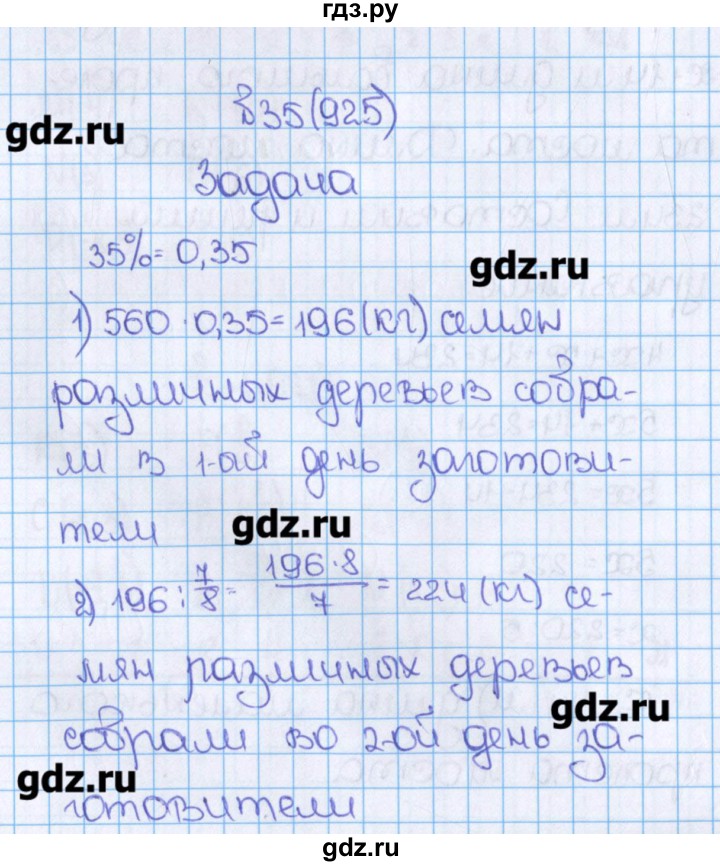 гдз.ру
§35(925)
gdz.ru
Задача
35%= 0,35
gdz.ru
1) 560 · 0,35= 196 (кг) семян
различных деревьев собра-
ли в 1-ый день заготови-
тели
gdz.ru
2) 196 : 7/8 = 196·8/7 = 224 (кг) се-
мян различных деревьев
gdz.ru
собрали во 2-ой день за-
gdz.ru
готовители
gdz.ru